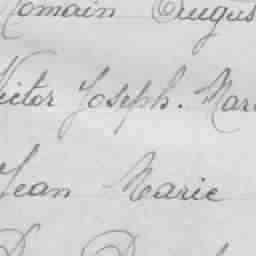 Romain August
Victor Joseph. Mari
Jean Marie